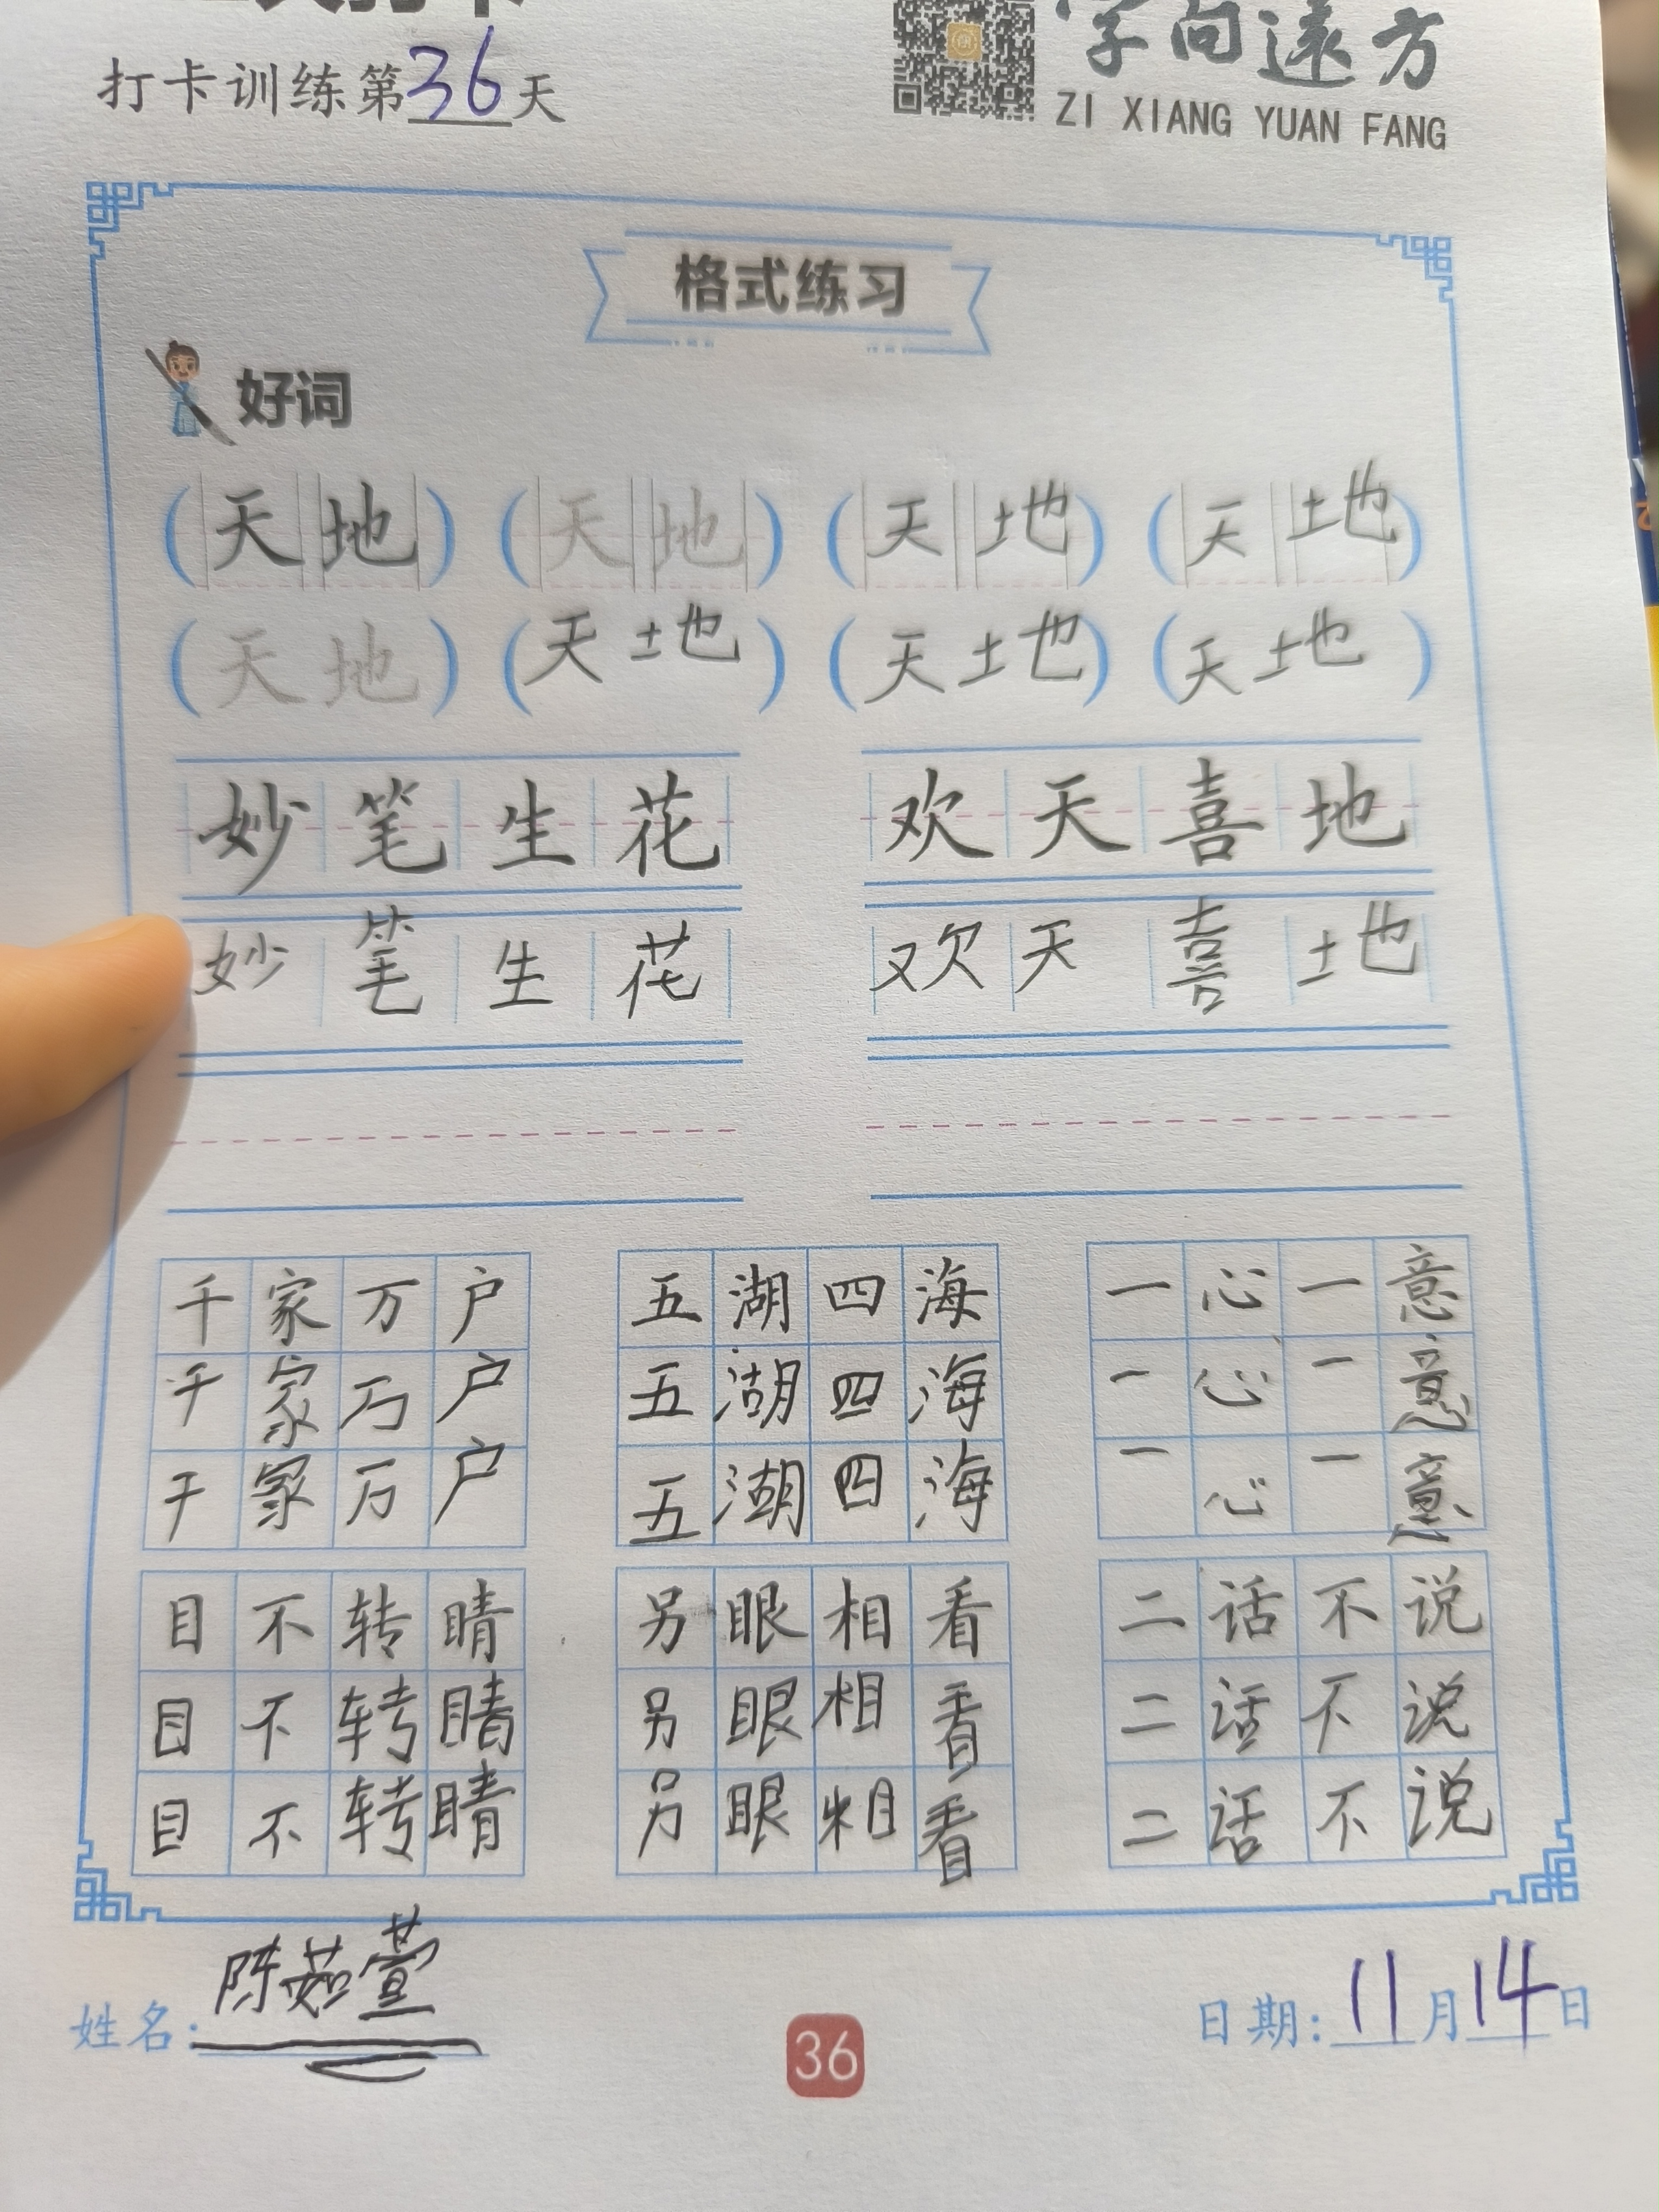 打卡训练第36天
字向远方
ZI XIANG YUAN FANG
格式练习
好词
(天地) (天地) (天地) (天地)
(天地) (天地) (天地) (天地)
妙笔生花 欢天喜地
妙笔生花 欢天喜地
千家万户 五湖四海 一心一意
千家万户 五湖四海 一心一意
千家万户 五湖四海 一心一意
目不转睛 另眼相看 二话不说
目不转睛 另眼相看 二话不说
目不转睛 另眼相看 二话不说
姓名:陈茹萱
36
日期:11月14日